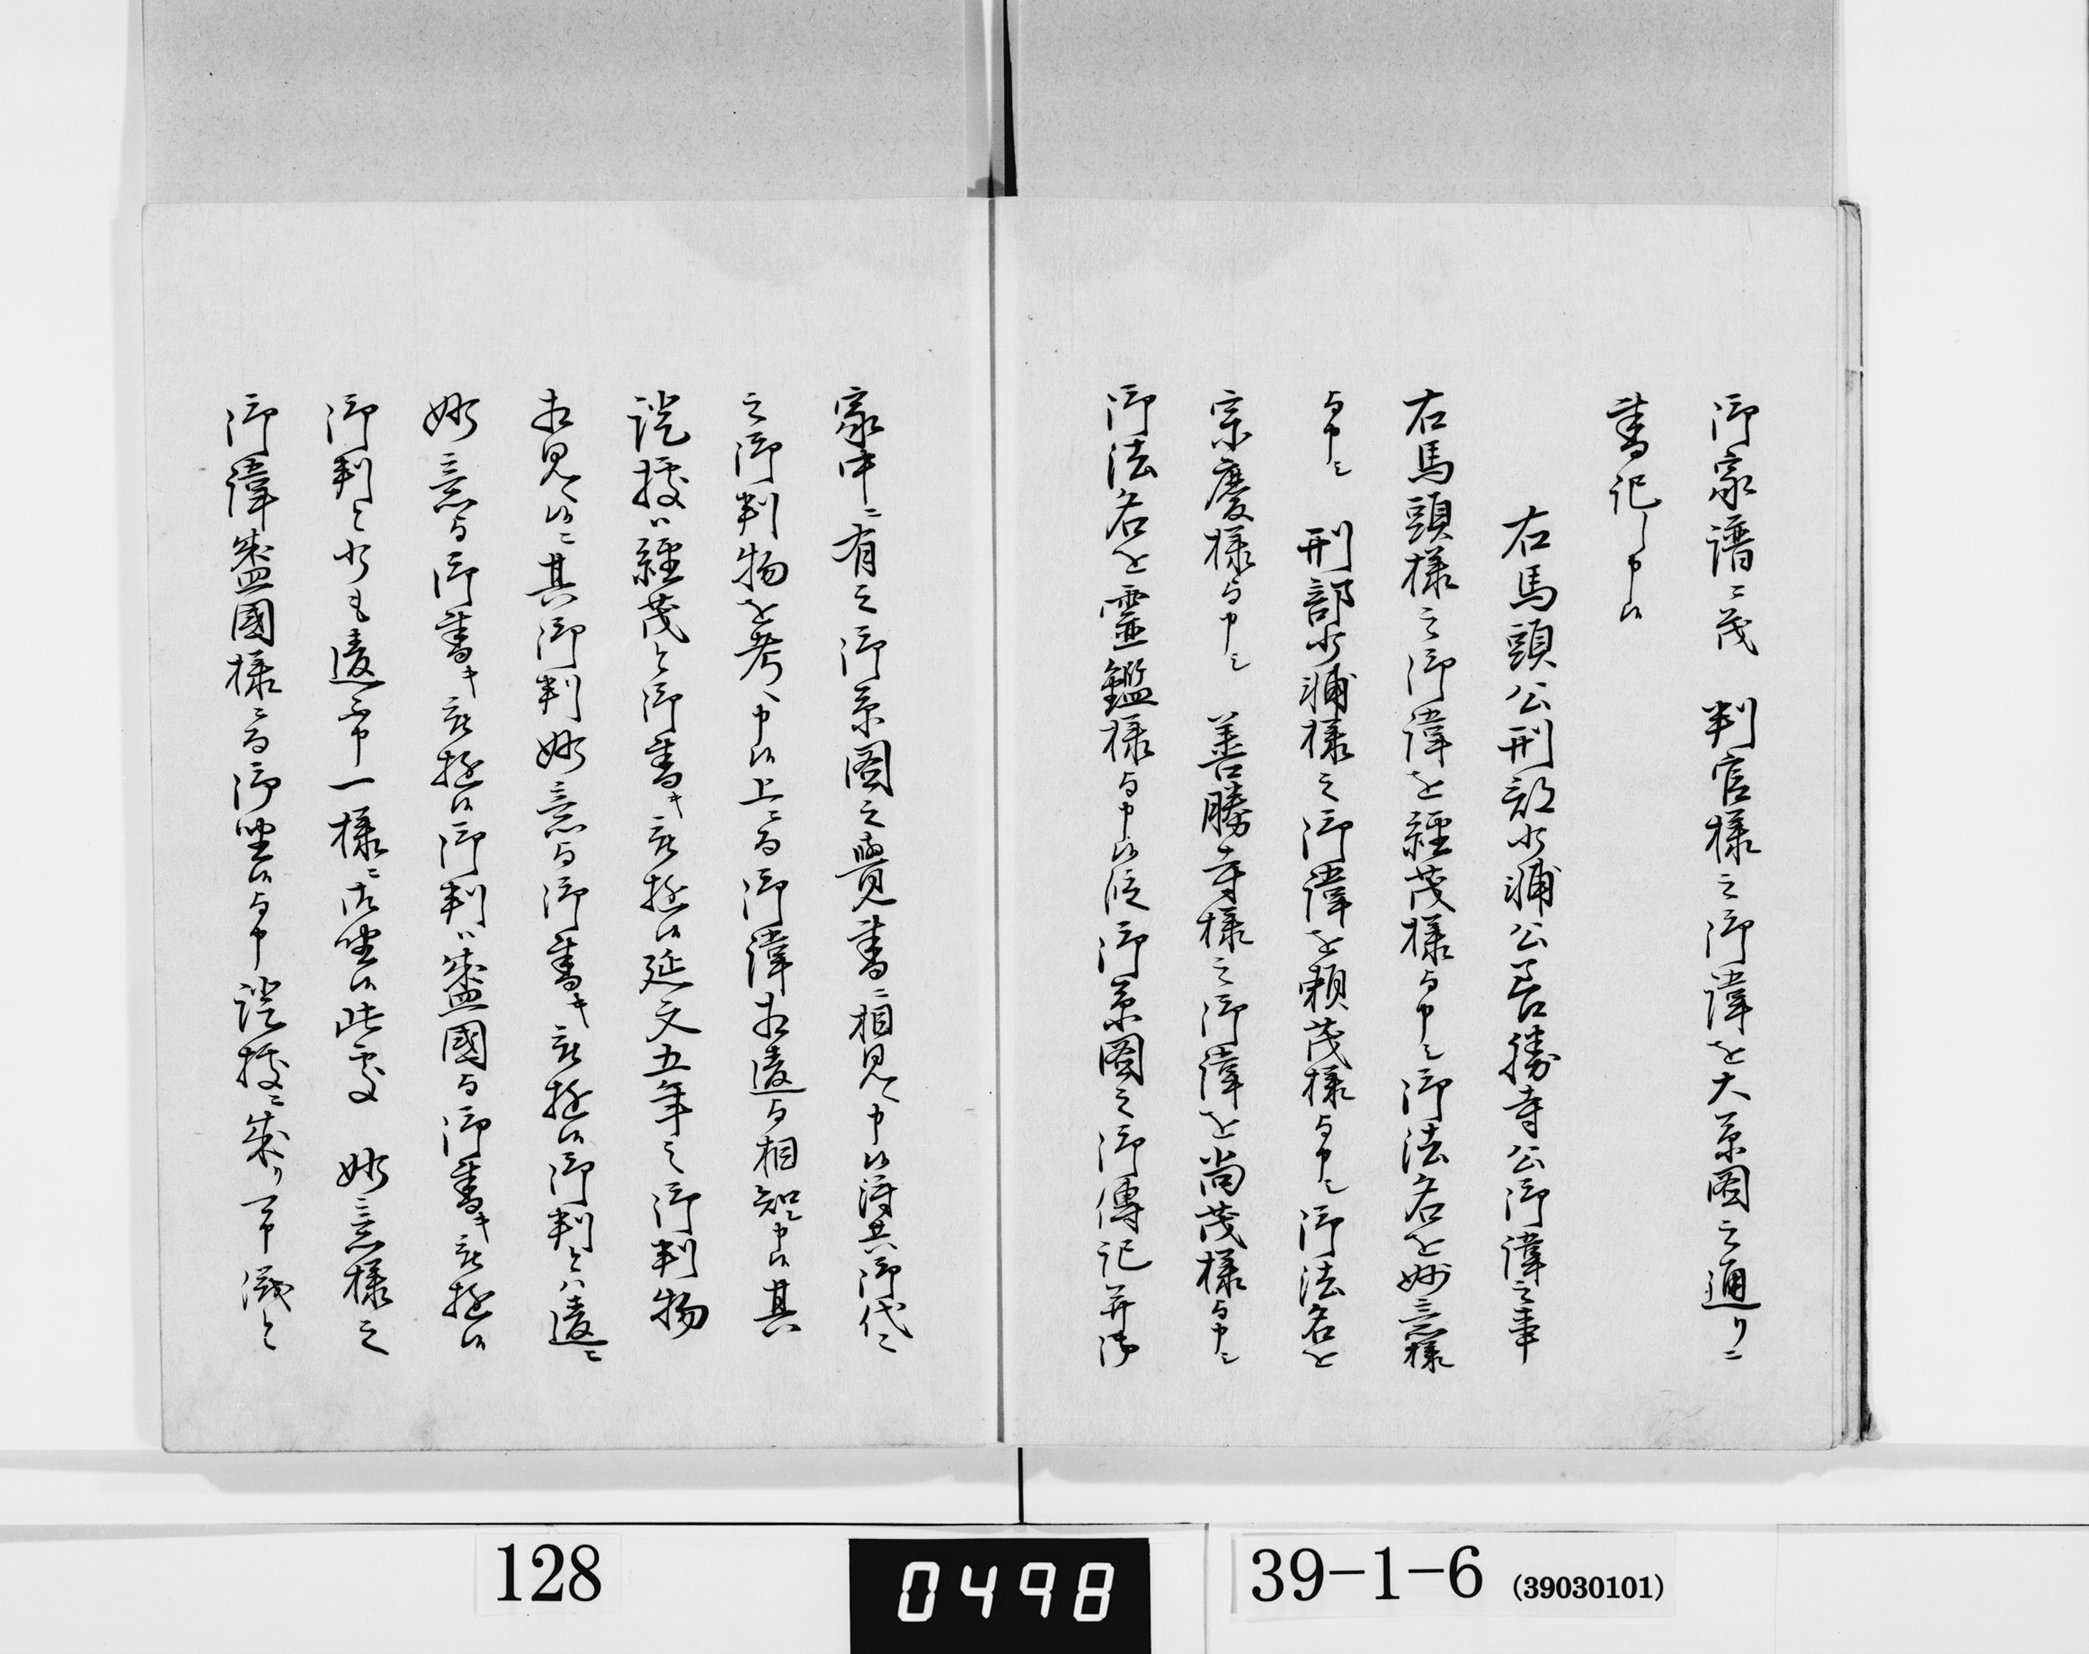 御家譜ニ茂　判官様之御諱を大系図之通りニ
書記し申候
右馬頭公刑部少輔公善勝寺公御諱之事
右馬頭様之御諱を経茂様与申し御法名を妙意様
与申し　刑部少輔様之御諱を頼茂様与申し御法名を
宗慶様与申し　善勝寺様之御諱を尚茂様与申し
御法名を霊鑑様与申候段御系図之御傳記并御
家中ニ有之御系図之覺書ニ相見へ申候得共御代々
之御判物を考へ申候上ニ而御諱相違与相知レ申候其
證據ハ經茂と御書キ被遊候延文五年之御判物
相見へ候ニ其御判妙意与御書キ被遊候御判とハ違ニ
妙意与御書キ被遊候御判ハ盛國与御書キ被遊候
御判と少も違不申一様ニ御坐候此處　妙意様之
御諱盛國様ニ而御坐候与申證據ニ成リ可申哉と
128
0498
39-1-6 (39030101)